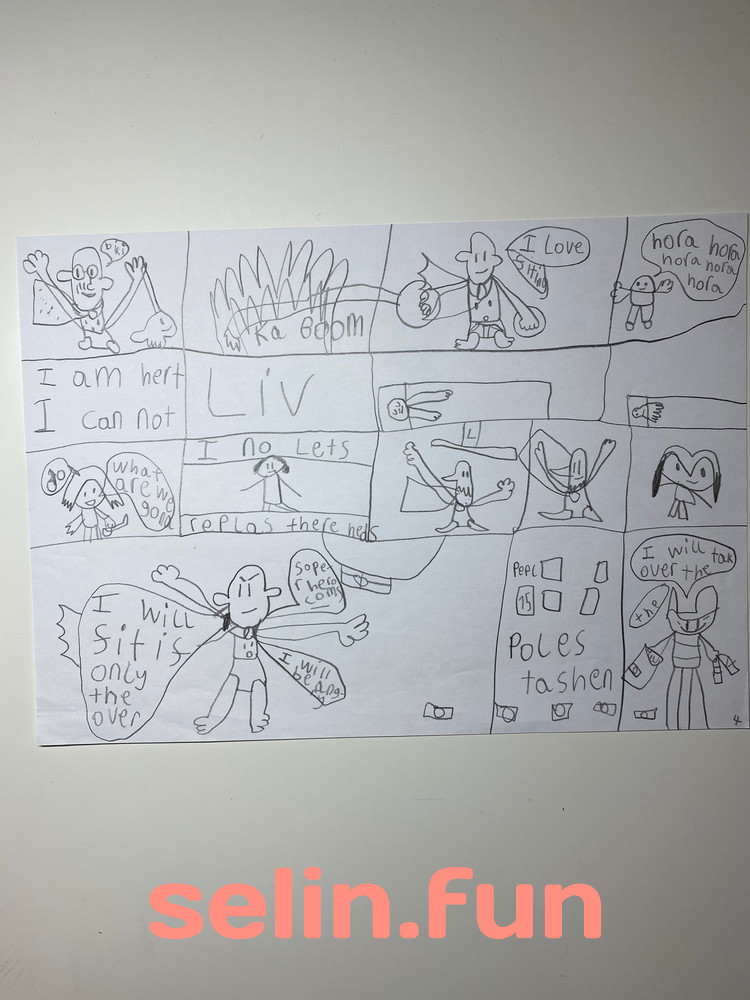 oiki
Ka Boom
I Love
sitind
hora hora
hora hora
hora
I am hert
I can not
Liv
go
what
are we
gona
I no Lets
replas there heds
L
I will
sit is
only
the
over
soper
hero
coms
I will
be ang
PePL
15
Poles
tashen
I will tak
over the
the
4
selin.fun